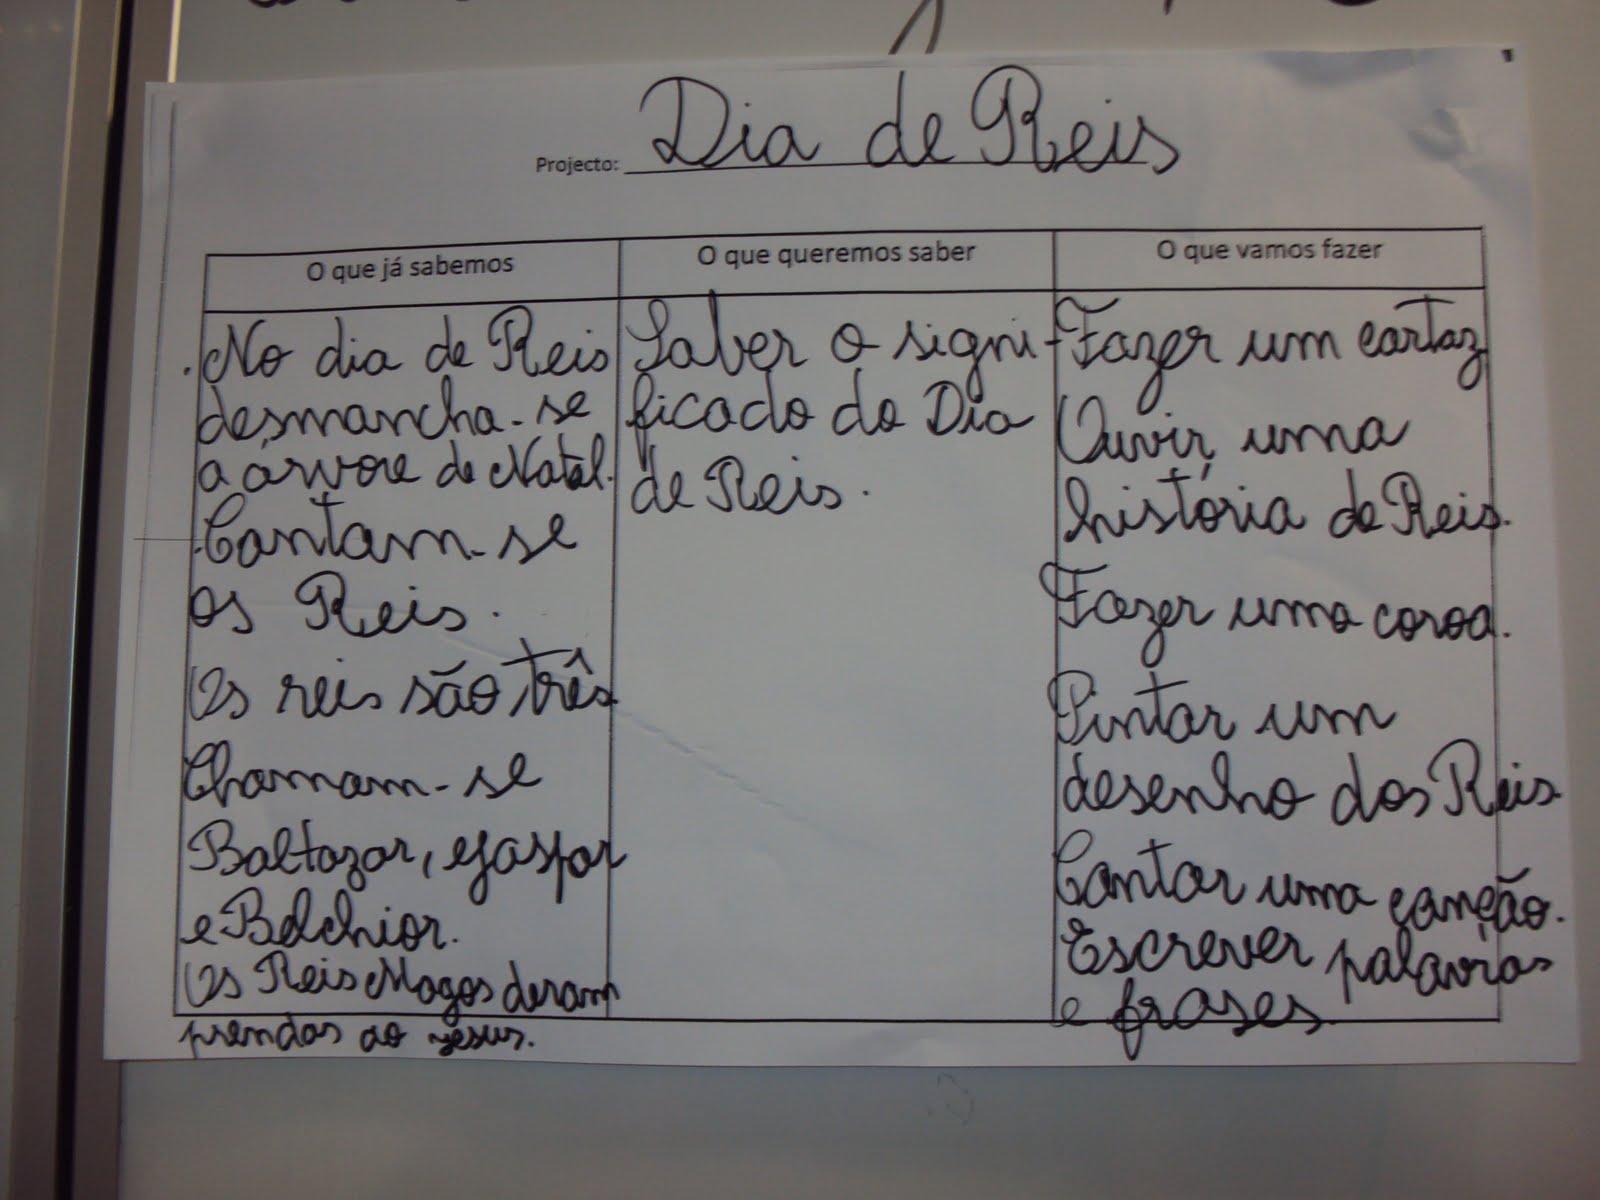 Projecto: Dia de Reis
O que já sabemos
O que queremos saber
O que vamos fazer
. No dia de Reis
desmancha-se
a árvore de Natal.
. Cantam-se
os Reis.
Os reis são três.
Chamam-se
Baltazar, Gaspar
e Belchior.
Os Reis Magos deram
prendas ao Jesus.
Saber o signi-
ficado do Dia
de Reis.
Fazer um cartaz
Ouvir uma
história de Reis.
Fazer uma coroa.
Pintar um
desenho dos Reis
Cantar uma canção.
Escrever palavras
e frases